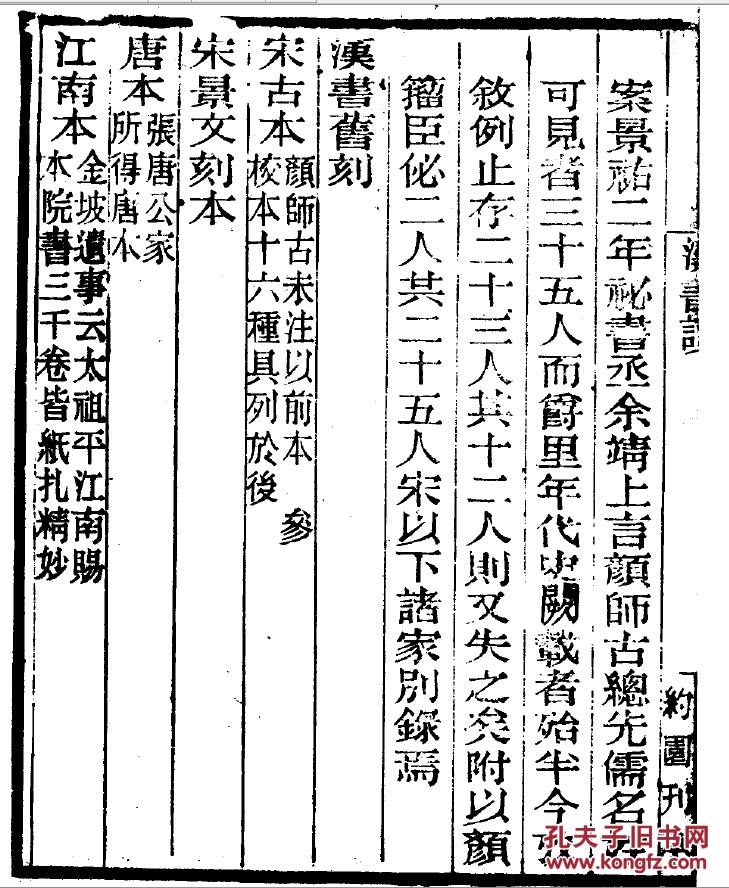 漢書
約園刊
案景祐二年祕書丞余靖上言顏師古總先儒名
可見者三十五人而爵里年代史闕載者殆半今
敘例止存二十三人其十二人則又失之矣附以顏
籀臣佖二人共二十五人宋以下諸家別錄焉
漢書舊刻
宋古本 顏師古未注以前本 參
校本十六種具列於後
宋景文刻本
唐本 張唐公家
所得唐本
江南本 金坡遺事云太祖平江南賜
本院書三千卷皆紙扎精妙
孔夫子旧书网
www.kongfz.com